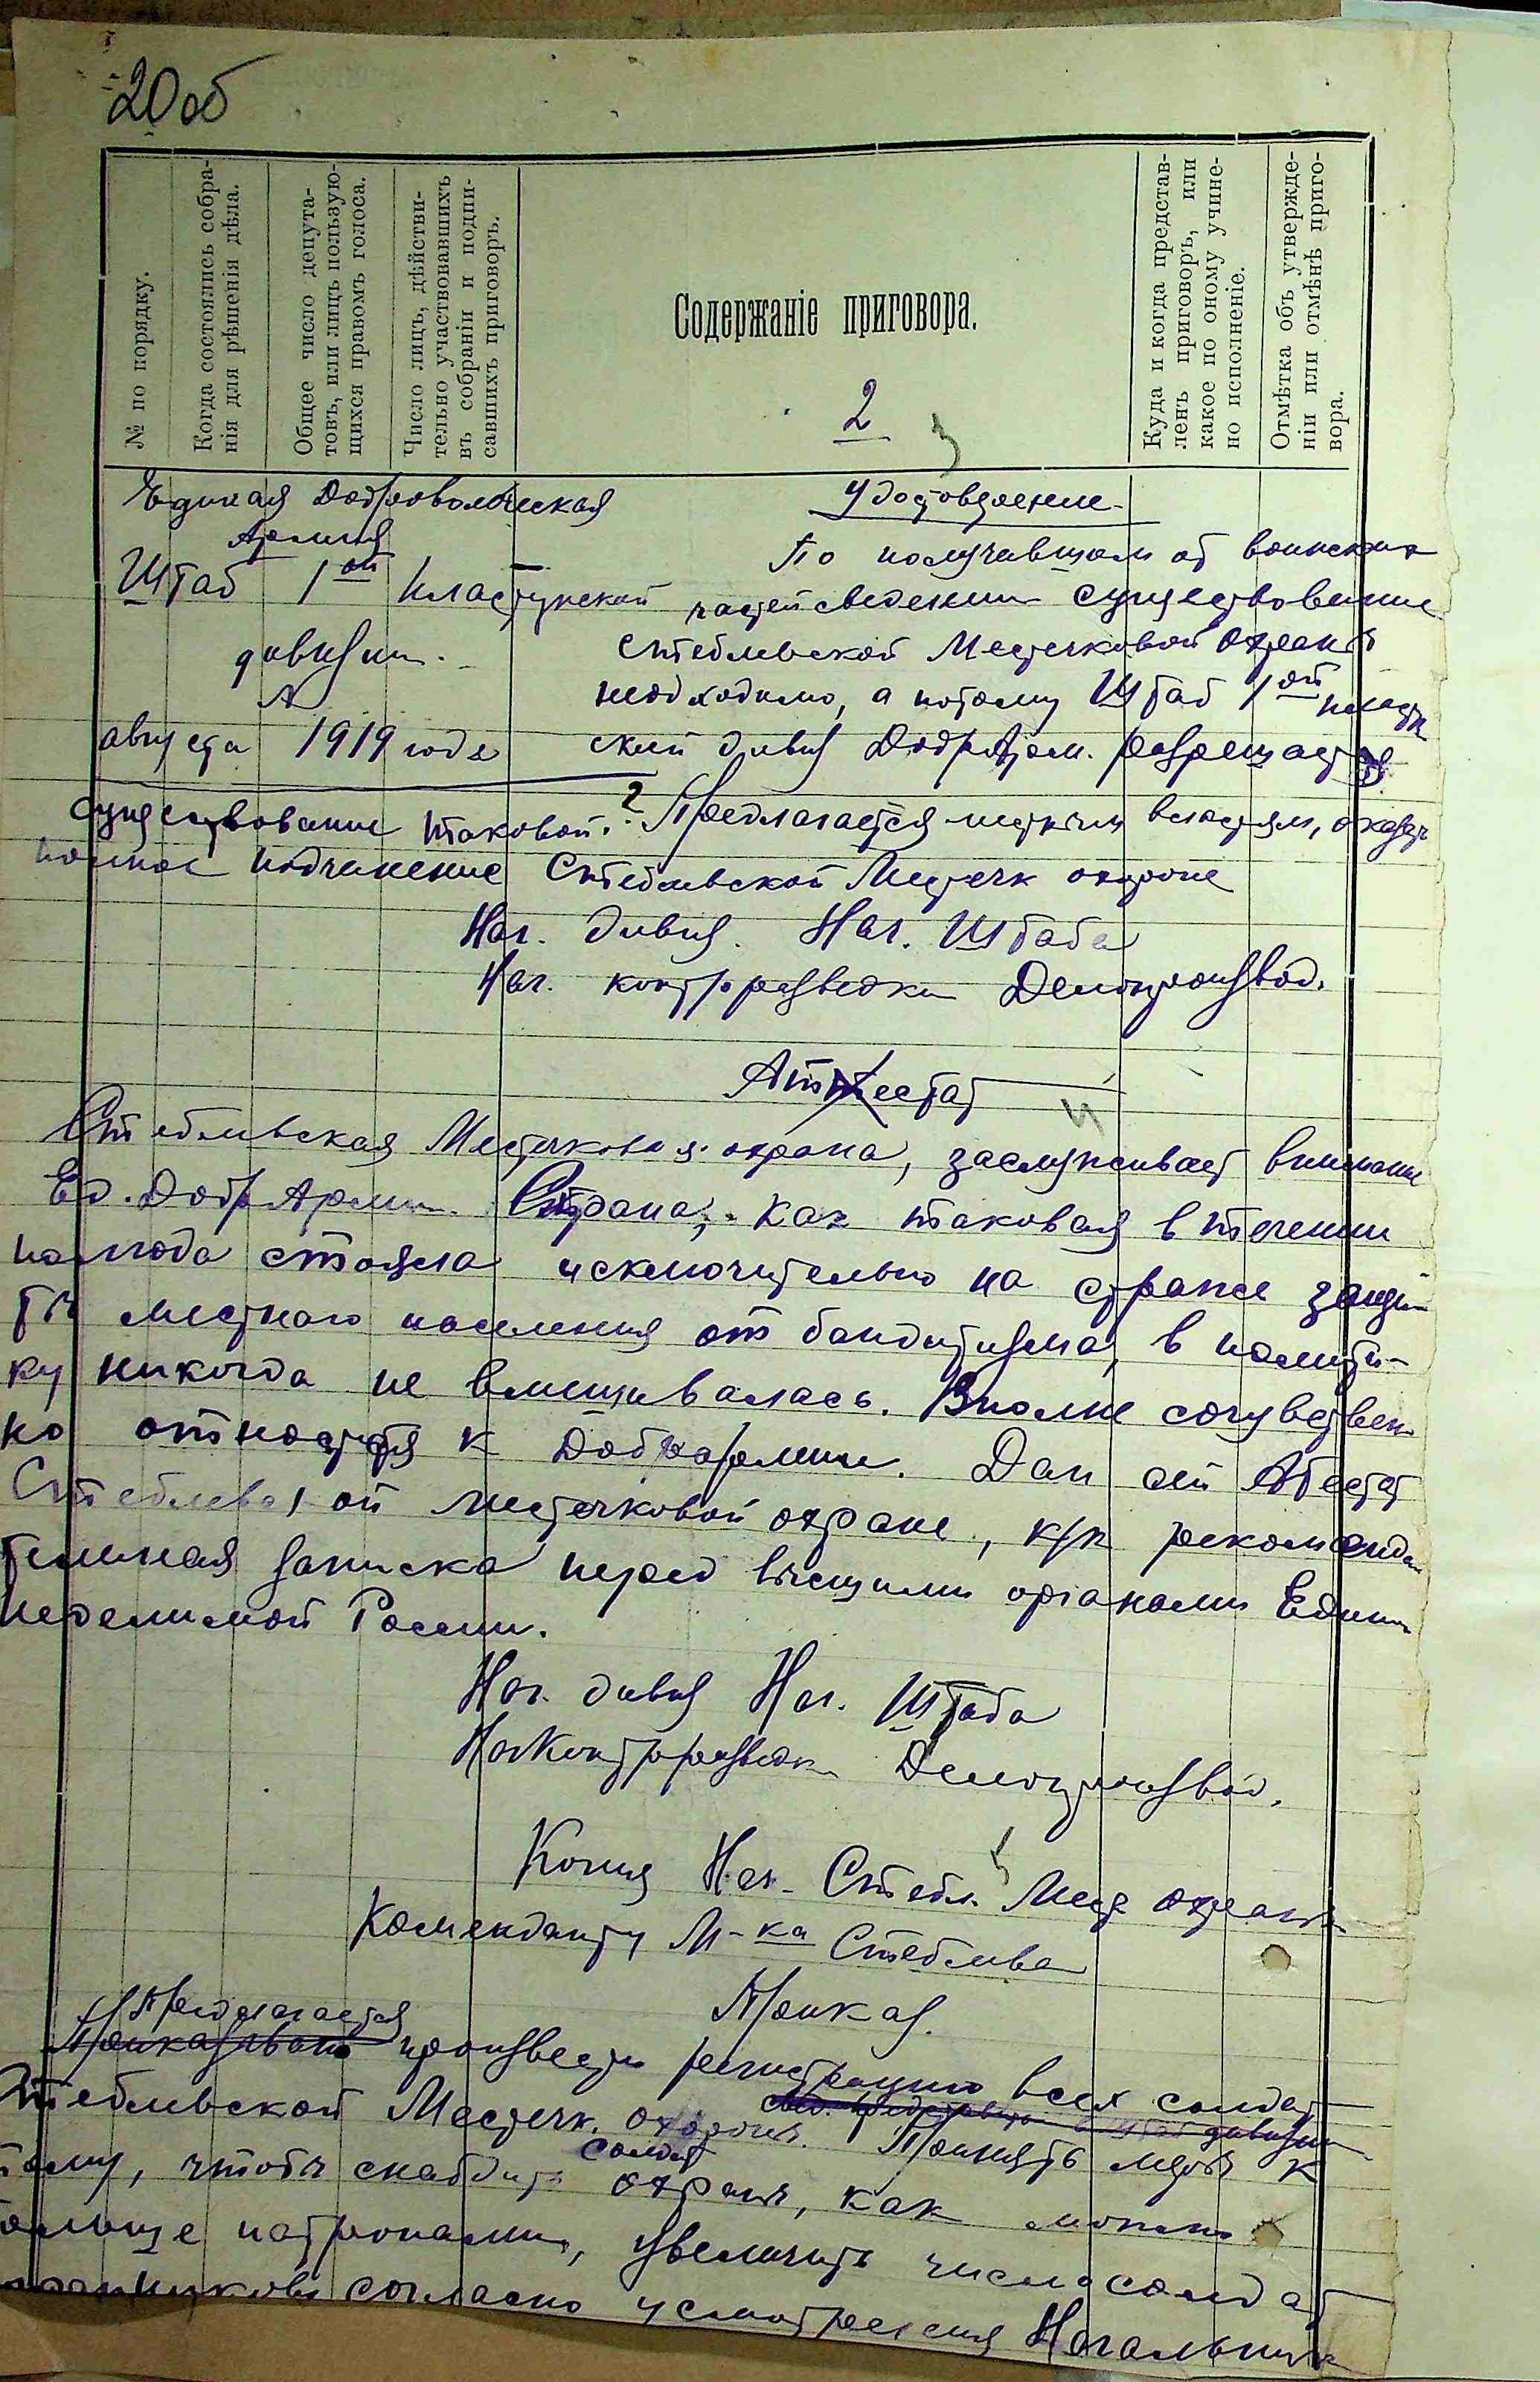 20 об
№ по порядку.
Когда состоялись собра-
нія для рѣшенія дѣла.
Общее число депута-
товъ, или лицъ пользую-
щихся правомъ голоса.
Число лицъ, дѣйстви-
тельно участвовавшихъ
въ собраніи и подпи-
савшихъ приговоръ.
Содержаніе приговора.
Куда и когда представ-
ленъ приговоръ, или
какое по оному учине-
но исполненіе.
Отмѣтка объ утвержде-
ніи или отмѣнѣ приго-
вора.
2
3
Единая Добровольческая
Армия
Штаб 1ой Пластунской
дивизии.
августа 1919 года
Удостоверение
По получавшем от воинских
частей сведении существование
Стеблевской Местечковой охраны
необходимо, а потому Штаб 1ой
ский дивиз Добрарм. разрешает
существование таковой. ? Предлагается местным властям, оказать
полное подчинение Стеблевской Местечк охроне
Нач. дивиз. Нач. Штаба
Нач. контрразведки Делопроизвод.
Аттестат
4
Стеблевская Местечковая охрана, заслуживает внимание
Ед. Добр Армии. Охрана, как таковая в течении
полгода стояла исключительно на страже защи
ты местного населения от бандитизма, в полити-
ку никогда не вмешивалась. Вполне сочувствен
но относится к Добрармии. Дан сей Атестат
Стеблевской местечковой охране, как рекоменда
тельная записка перед высшими органами Един
неделимой России.
Нач. дивиз Нач. Штаба
Нач Контрразведки Делопроизвод.
5
Копия Нач. Стебл. Мест охраны
Коменданту М-ка Стеблева
Приказ.
Предлагается
Приказывано произвести регистрацию всех солдат
Стеблевской Местечк. охороны. Принять меры к
дивизии
тому, чтобы снабдить солдат охраны, как можно
больше патронами, увеличить число солдат
охранников согласно усмотрения Начальник